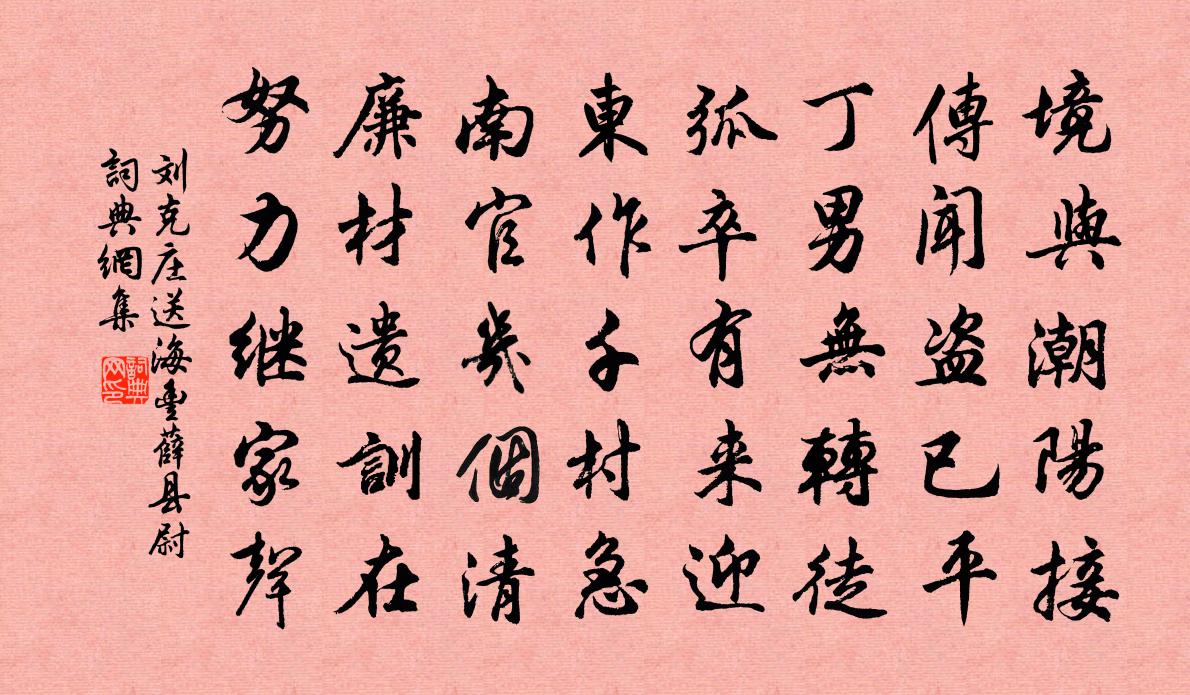 境與潮陽接
傳聞盗已平
丁男無轉徙
弧卒有来迎
東作千村急
南官幾個清
廉材遗訓在
努力继家聲
刘克庄送海豐薛县尉
詞典網集
詞典网印